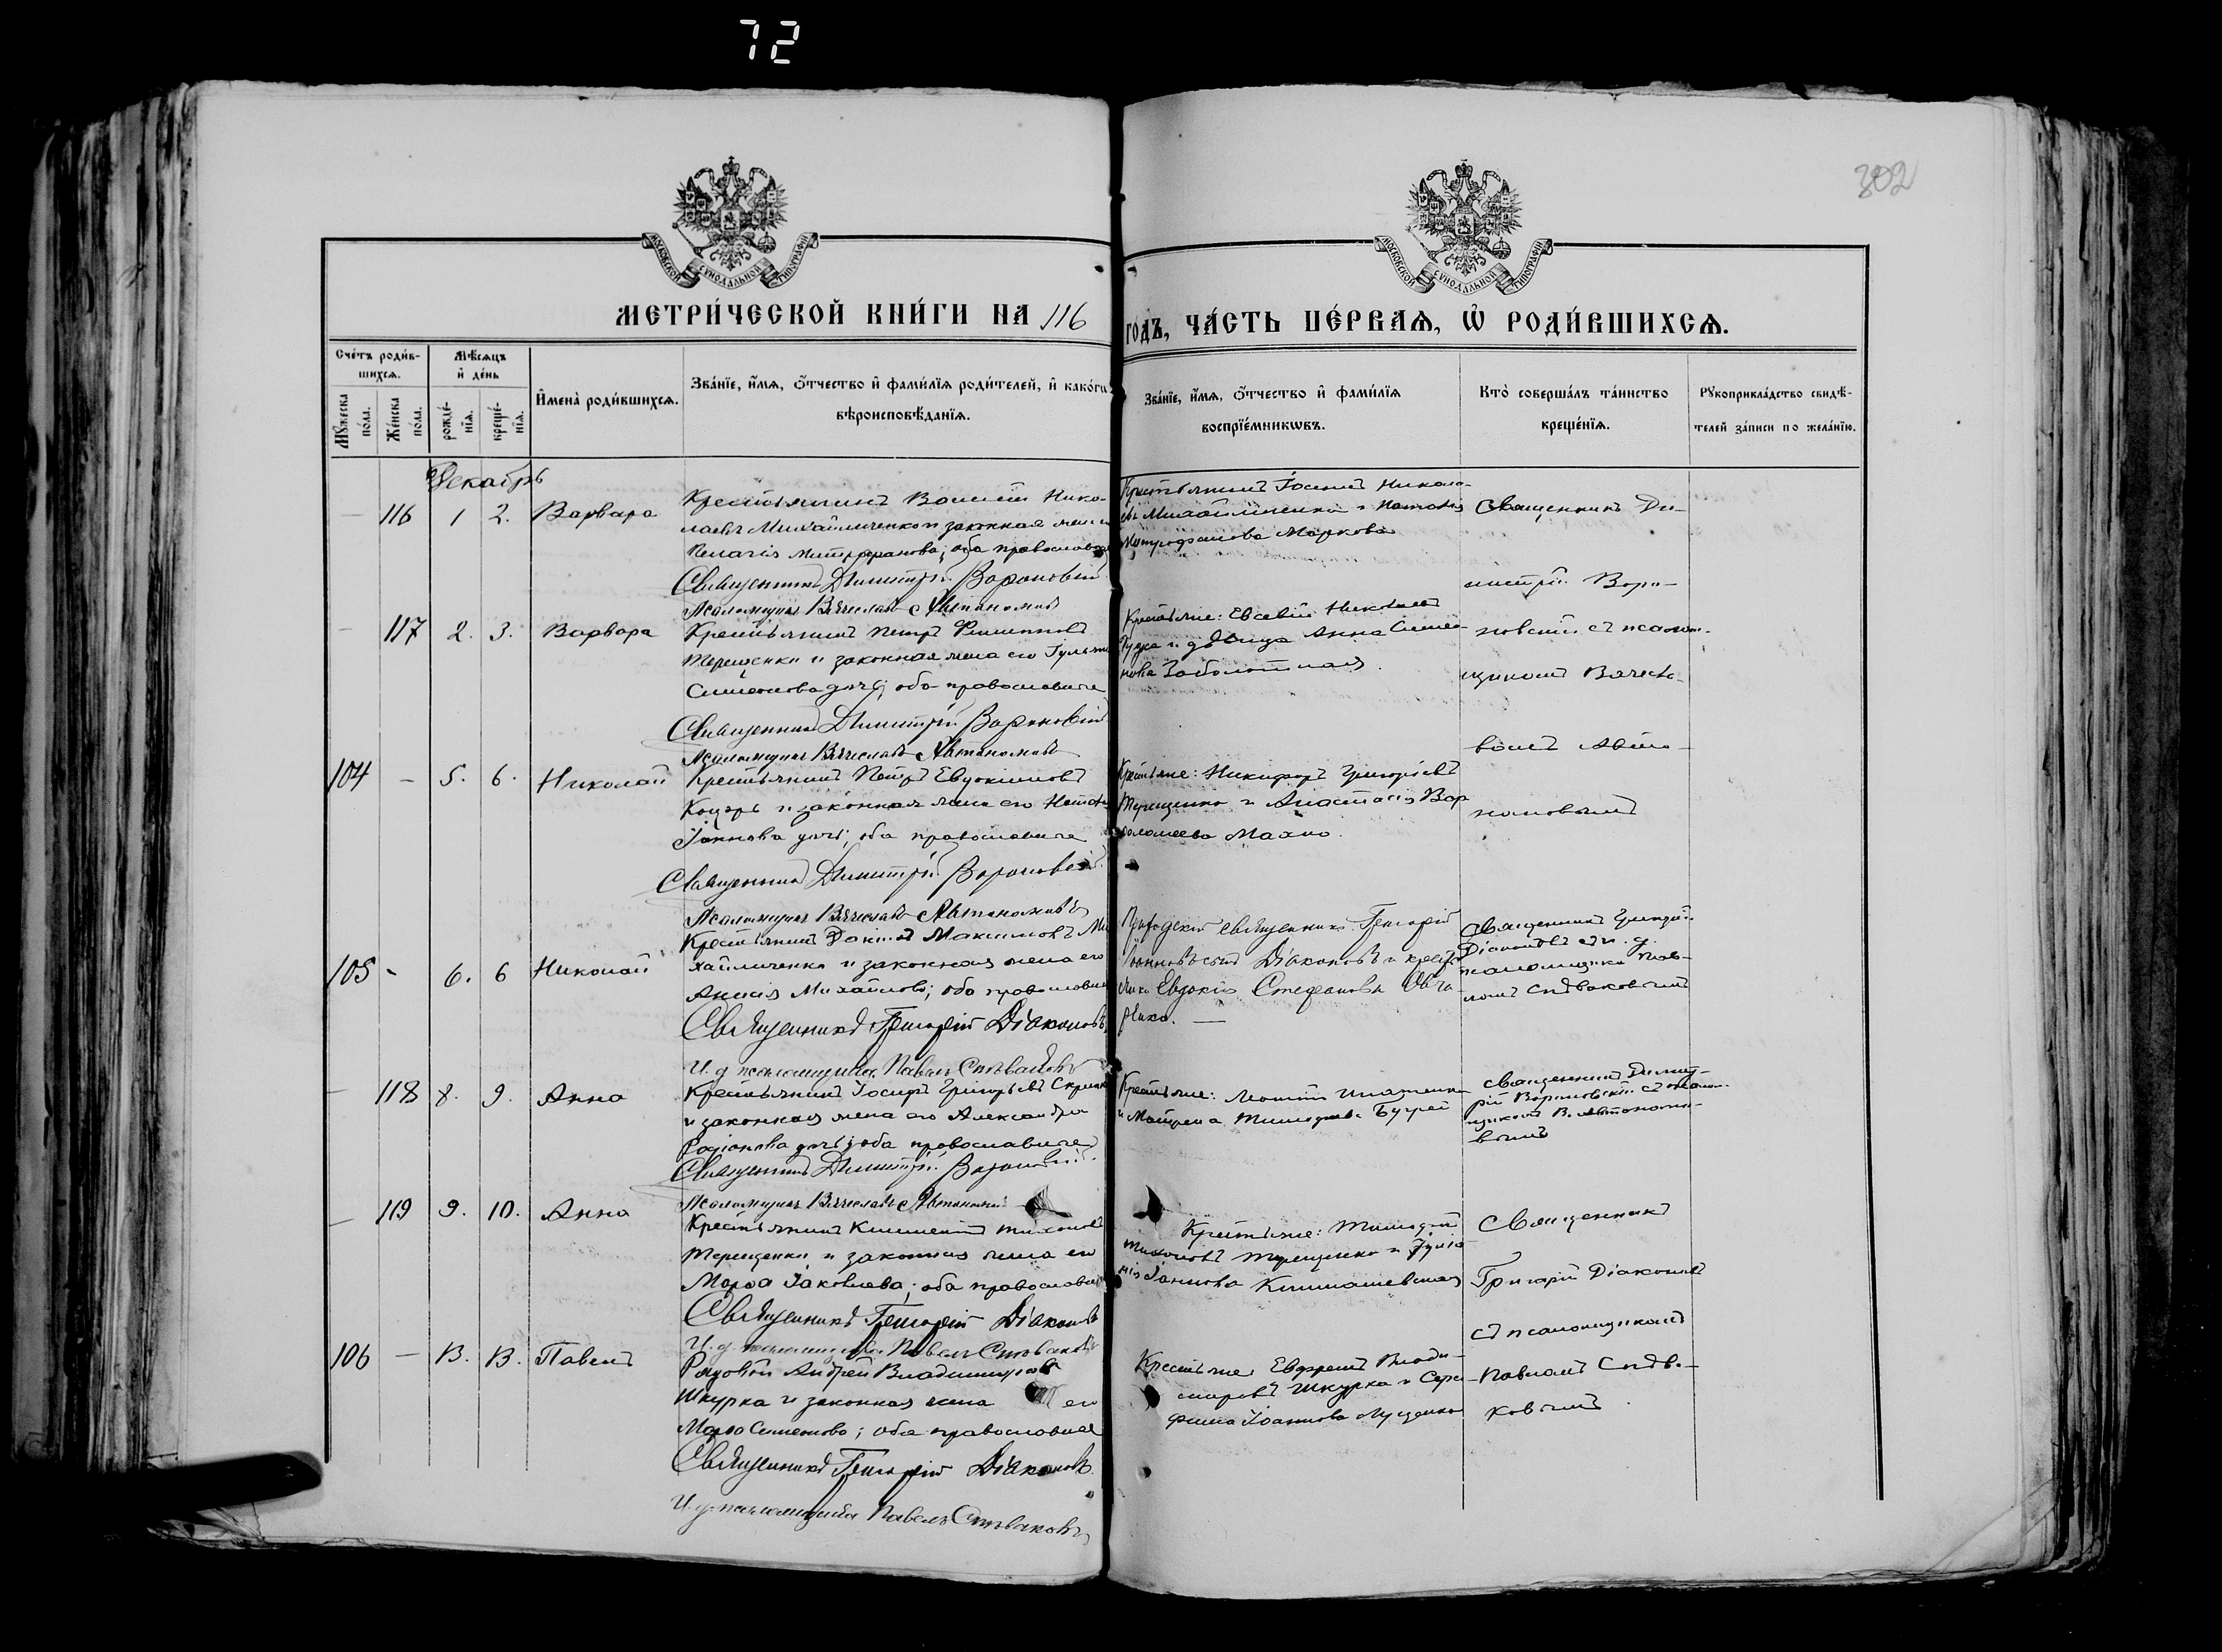 72
302
МОСКОВСКОЙ СѴНОДАЛЬНОЙ ТИПОГРАФІИ
МОСКОВСКОЙ СѴНОДАЛЬНОЙ ТИПОГРАФІИ
МЕТРИ́ЧЕСКОЙ КНИ́ГИ НА 116
ГОДЪ, ЧА́СТЬ ПЕ́РВАѦ, Ѡ҆ РОДИ́ВШИХСѦ.
Счетъ роди́в-
шихсѧ.
Мꙋ́жеска
по́ла.
Же́нска
по́ла.
Мѣ́сѧцъ
и҆ де́нь
рожде́-
нїѧ.
креще́-
нїѧ.
И҆мена̀ роди́вшихсѧ.
Зва́нїе, и҆́мѧ, ѻ҆́тчество и҆ фами́лїѧ роди́телей, и҆ како́гѡ
вѣроисповѣ́данїѧ.
Зва́нїе, и҆́мѧ, ѻ҆́тчество и҆ фами́лїѧ
воспрїе́мникѡвъ.
Кто̀ соверша́лъ та́инство
креще́нїѧ.
Рꙋкоприкла́дство свидѣ́-
телей за́писи по жела́нїю.
Декабрь
116 1 2. Варвара
Крестьянинъ Нико-
лаевъ Михайличенко и законная жена
Пелагія Митрофанова; оба православные
Священникъ Димитрій Вороновскій
Псаломщикъ Вячеславъ Автономовъ
Крестьянинъ Николае-
въ Михайличенко и Наталія
Митрофанова Маркова
Священникъ Ди-
митрій Воро-
новскій съ псалом-
щикомъ Вячесла-
вомъ Авто-
номовымъ
117 2. 3. Варвара
Крестьянинъ Петръ Филипповъ
Терещенко и законная жена его
Симеонова дочь; оба православные
Священникъ Димитрій Вороновскій
Псаломщикъ Вячеславъ Автономовъ
Крестьяне: Евсевій Николаевъ
и дѣвица Анна Симео-
нова Заболотная
104 – 5. 6. Николай
Крестьянинъ Петръ Евдокимовъ
Коцарь и законная жена его
Іоаннова дочь; оба православные
Священникъ Димитрій Вороновскій
Псаломщикъ Вячеславъ Автономовъ
Крестьяне: Никифоръ Григорьевъ
Терещенко и Анастасія Вар-
фоломеева Махно.
105 - 6. 6 Николай
Крестьянинъ Максимовъ Ми-
хайличенко и законная жена его
Анисія Михайлова; оба православные
Священникъ Григорій Діаконовъ
И. д. псаломщика Павелъ Спѣваковъ
священникъ Григорій
Діаконовъ и крестья-
Евдокія Стефанова
Священникъ Григорій
Діаконовъ съ и. д.
псаломщика Пав-
ломъ Спѣваковымъ
118 8. 9. Анна
Крестьянинъ Іосифъ Григорьевъ
и законная жена его Александра
Родіонова дочь; оба православные
Священникъ Димитрій Вороновскій.
Псаломщикъ Вячеславъ Автономовъ
Крестьяне: Леонтій
и Матрена Тимофеева Бугрей
Священникъ Димит-
рій Вороновскій съ псалом-
щикомъ В. Автономо-
вымъ
119 9. 10. Анна
Крестьянинъ Климентъ Тихоновъ
Терещенко и законная жена его
Марфа Іаковлева; оба православные
Священникъ Григорій Діаконовъ
И. д. псаломщика Павелъ Спѣваковъ
Крестьяне: Тимофей
Тихоновъ Терещенко и Іулiа-
нія Іаннова Климашевская
Священникъ
Григорій Діаконовъ
съ псаломщикомъ
Павломъ Спѣва-
ковымъ
106 – 13. 13. Павелъ
Рядовой Андрей Владиміровъ
Шкурка и законная жена его
Марфа Симеонова; оба православные
Священникъ Григорій Діаконовъ.
И. д. псаломщика Павелъ Спѣваковъ
Крестьяне Евфремъ Влади-
міровъ Шкурка и Сера-
фима Іоаннова Луценко